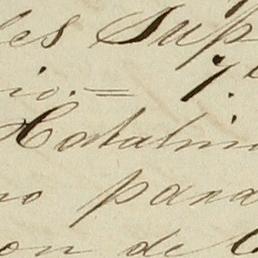 les Sup
io. = 7.
Catalin
no para
on de C